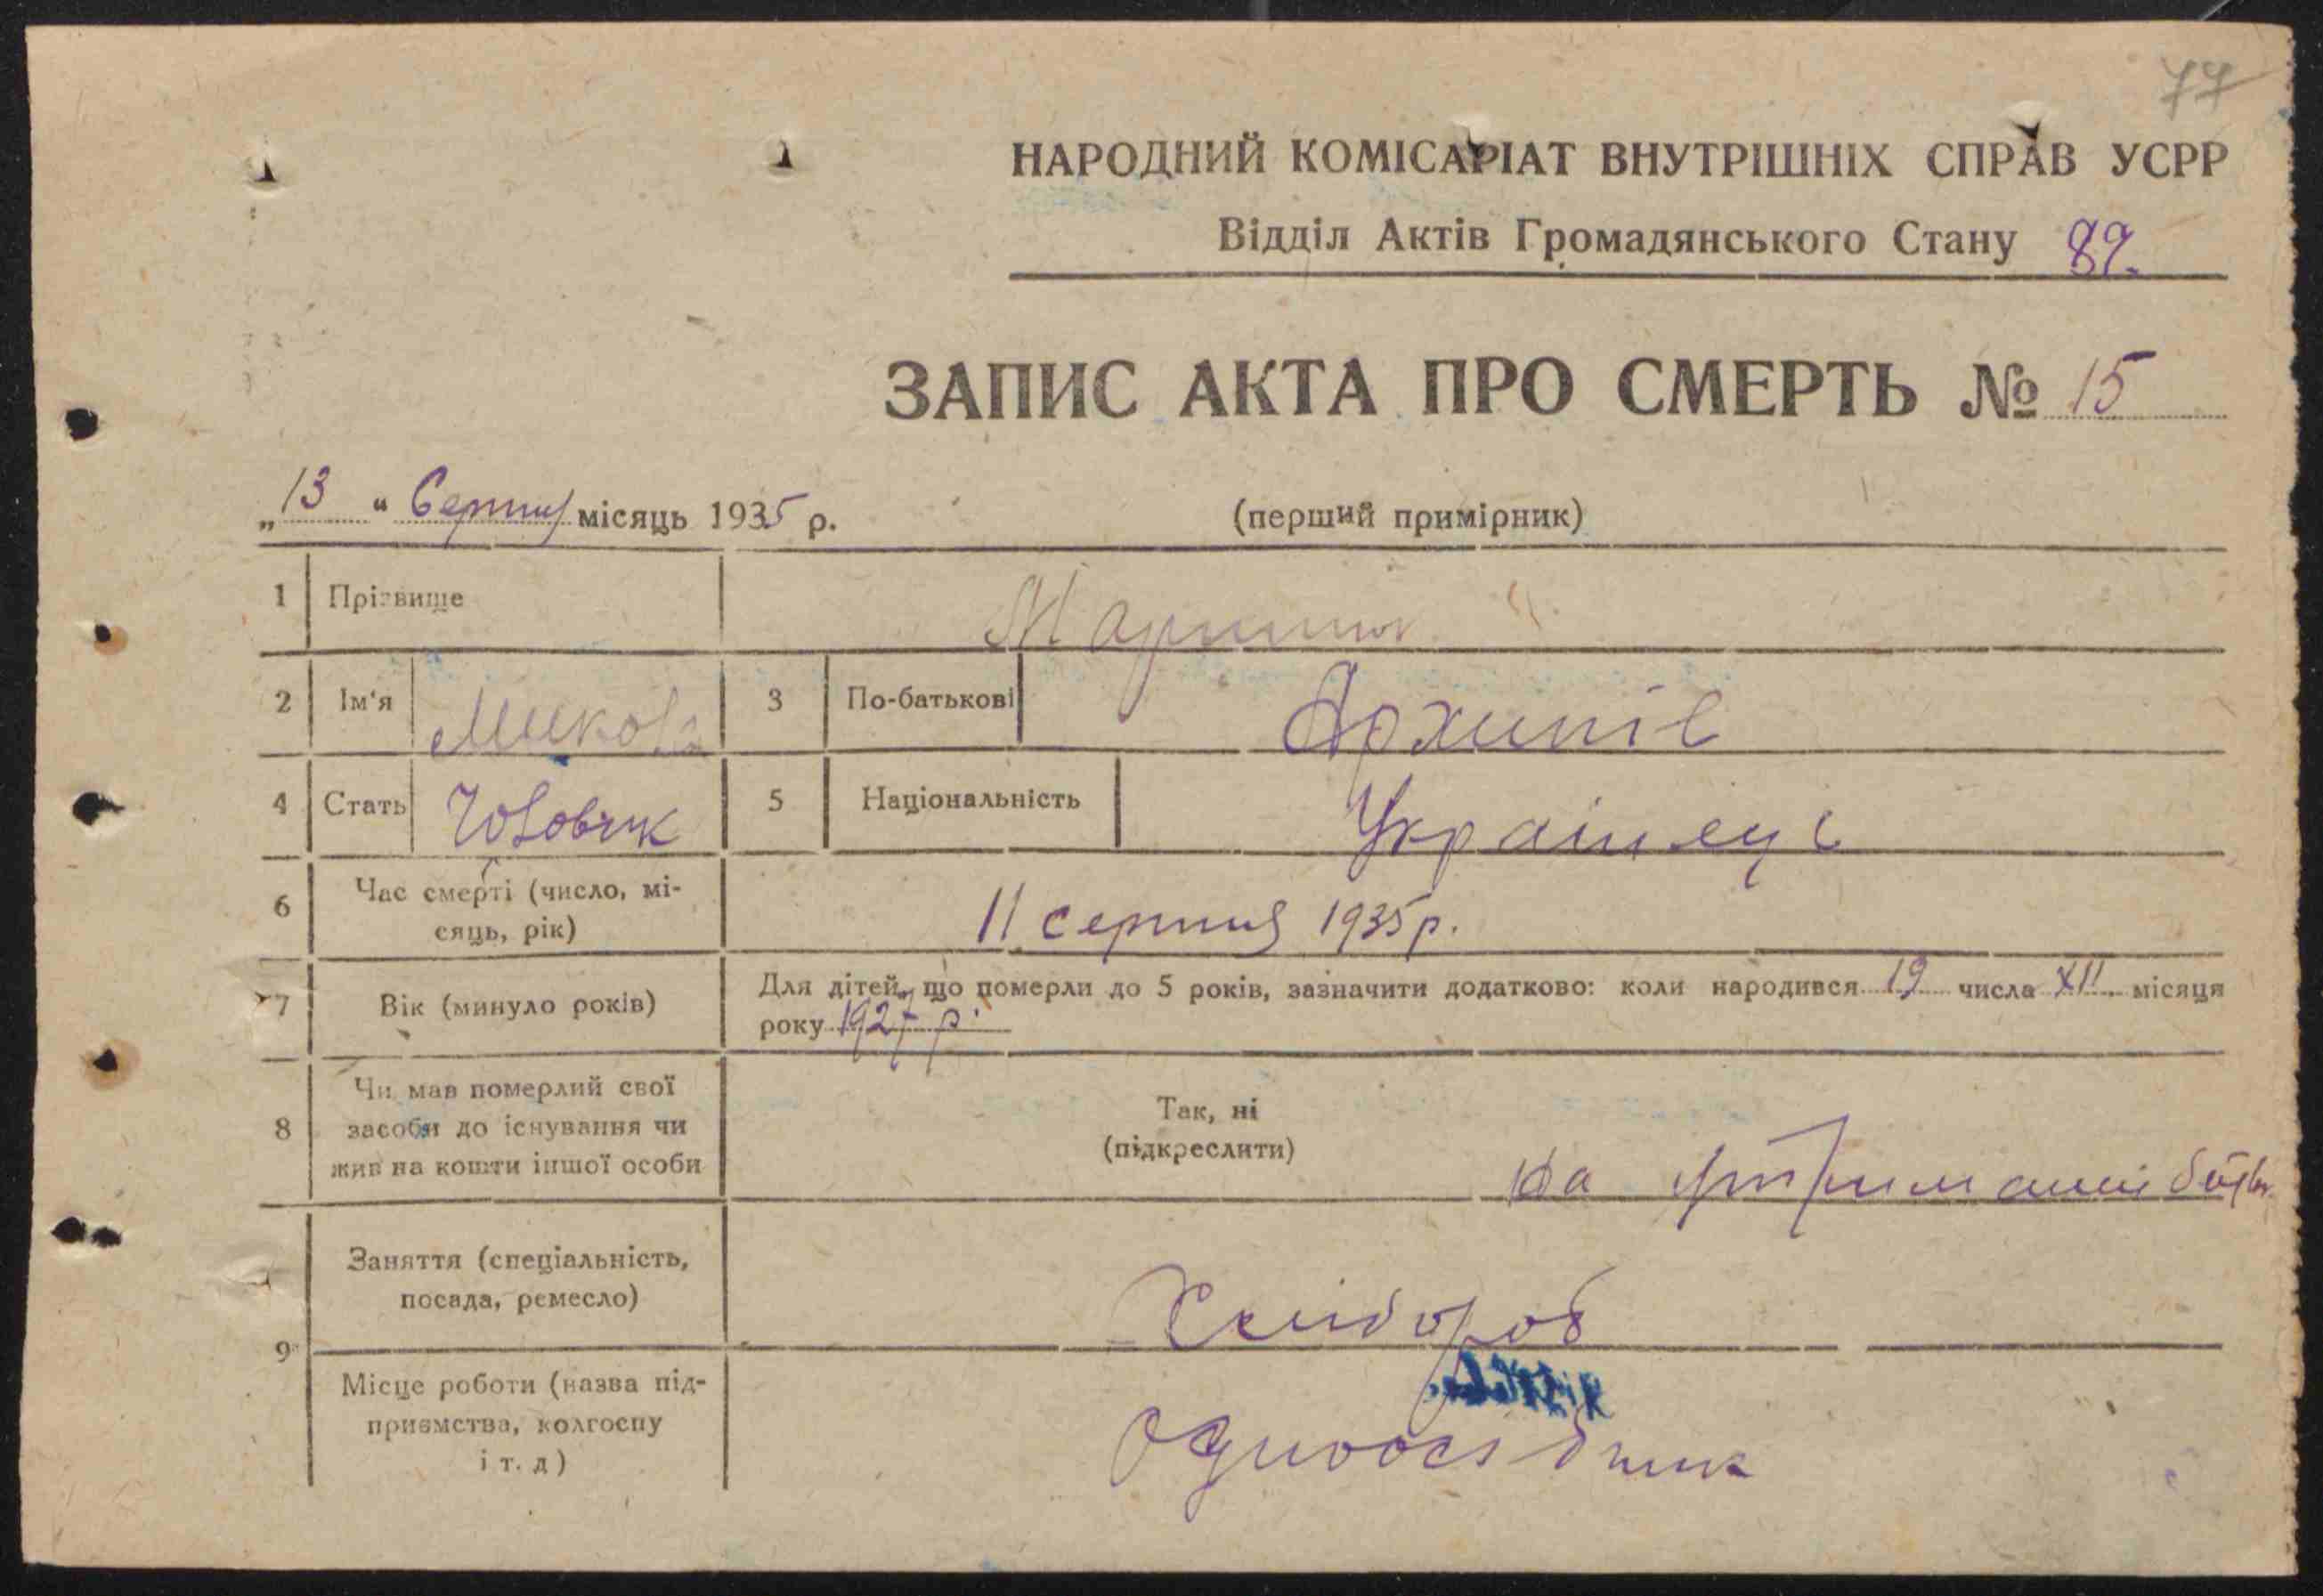 77
НАРОДНИЙ КОМІСАРІАТ ВНУТРІШНІХ СПРАВ УСРР
Відділ Актів Громадянського Стану 89.
ЗАПИС АКТА ПРО СМЕРТЬ № 15
„13“ Серпня місяць 1935 р. (перший примірник)
1 Прізвище
2 Ім'я Микола 3 По-батькові Архипів
4 Стать Чоловік 5 Національність Українець
6 Час смерті (число, мі-
сяць, рік) 11 серпня 1935 р.
7 Вік (минуло років) Для дітей, що померли до 5 років, зазначити додатково: коли народився 19 числа XII місяця
року 1927 р.
8 Чи мав померлий свої
засоби до існування чи
жив на кошти іншої особи
Так, ні
(підкреслити)
На утриманні
9 Заняття (спеціальність,
посада, ремесло) Хлібороб
Місце роботи (назва під-
приємства, колгоспу
і т. д) Одноосібник